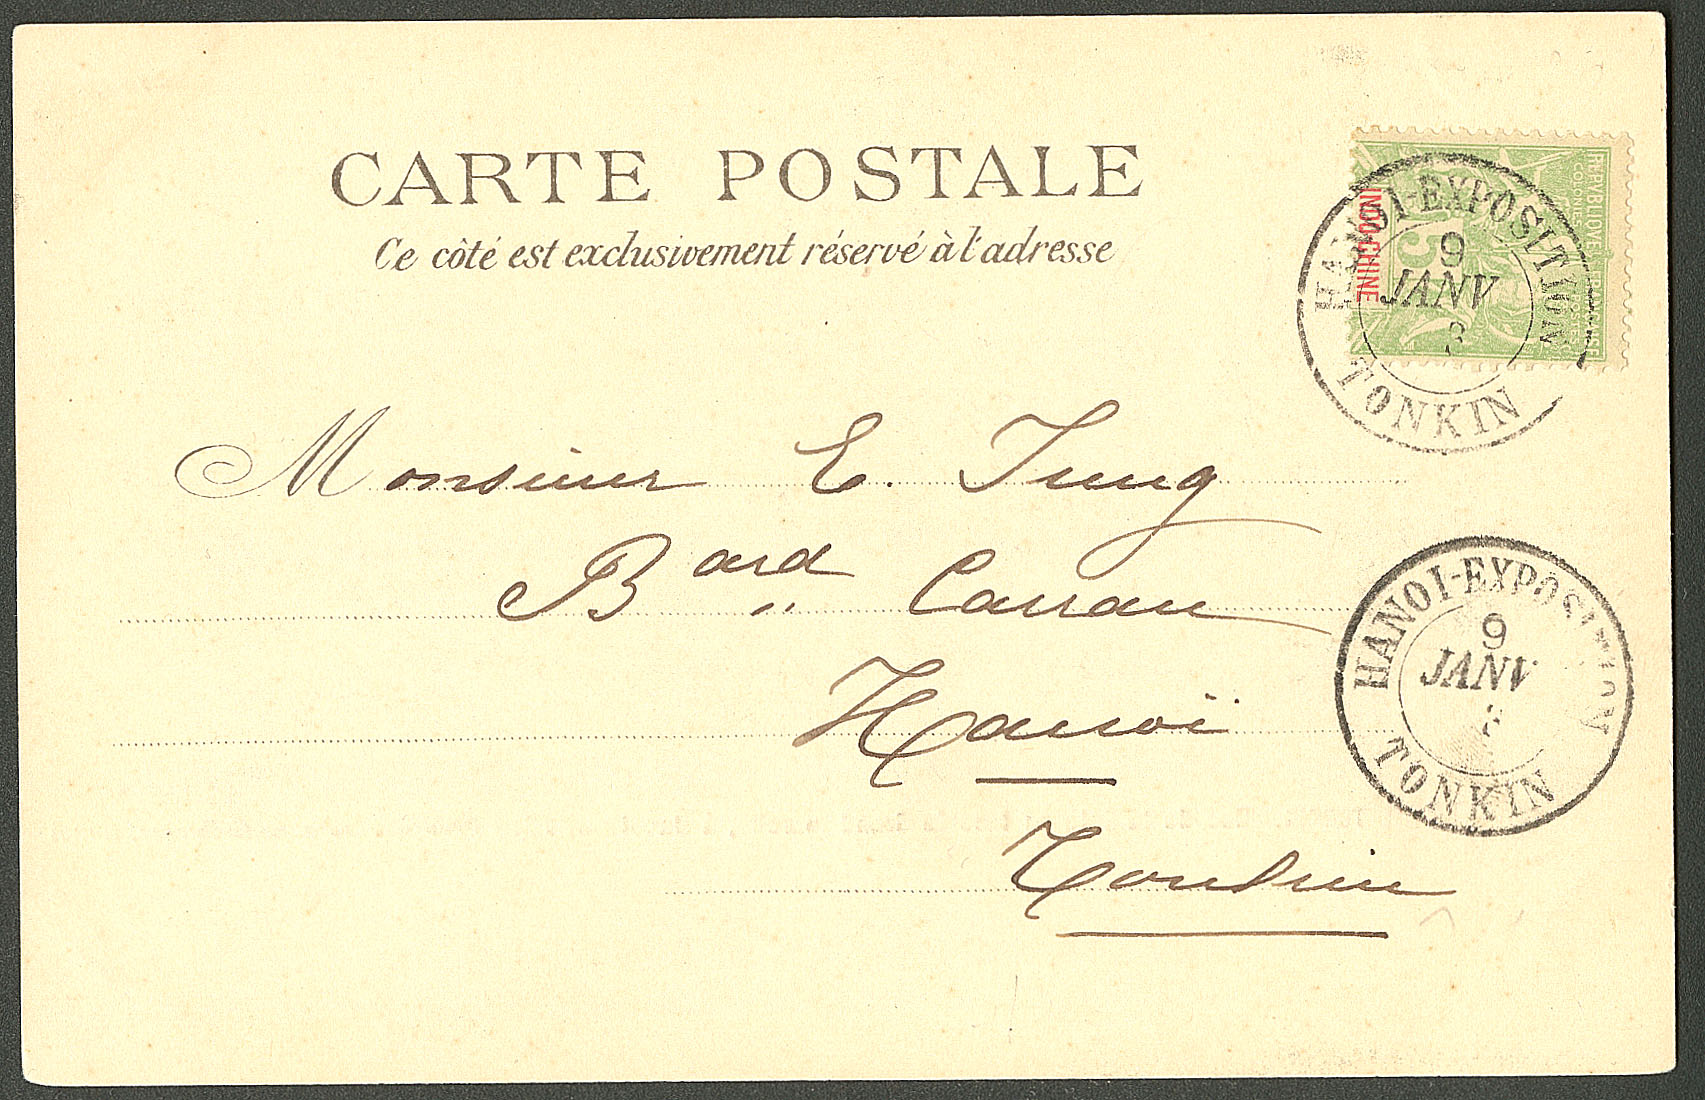 CARTE POSTALE
Ce côté est exclusivement réservé à l'adresse
INDO-CHINE
5
HANOI-EXPOSITION
9
JANV
3
TONKIN
Monsieur E. Jung
Bard Carrau
Hanoï
Tonkin
HANOI-EXPOSITION
9
JANV
3
TONKIN